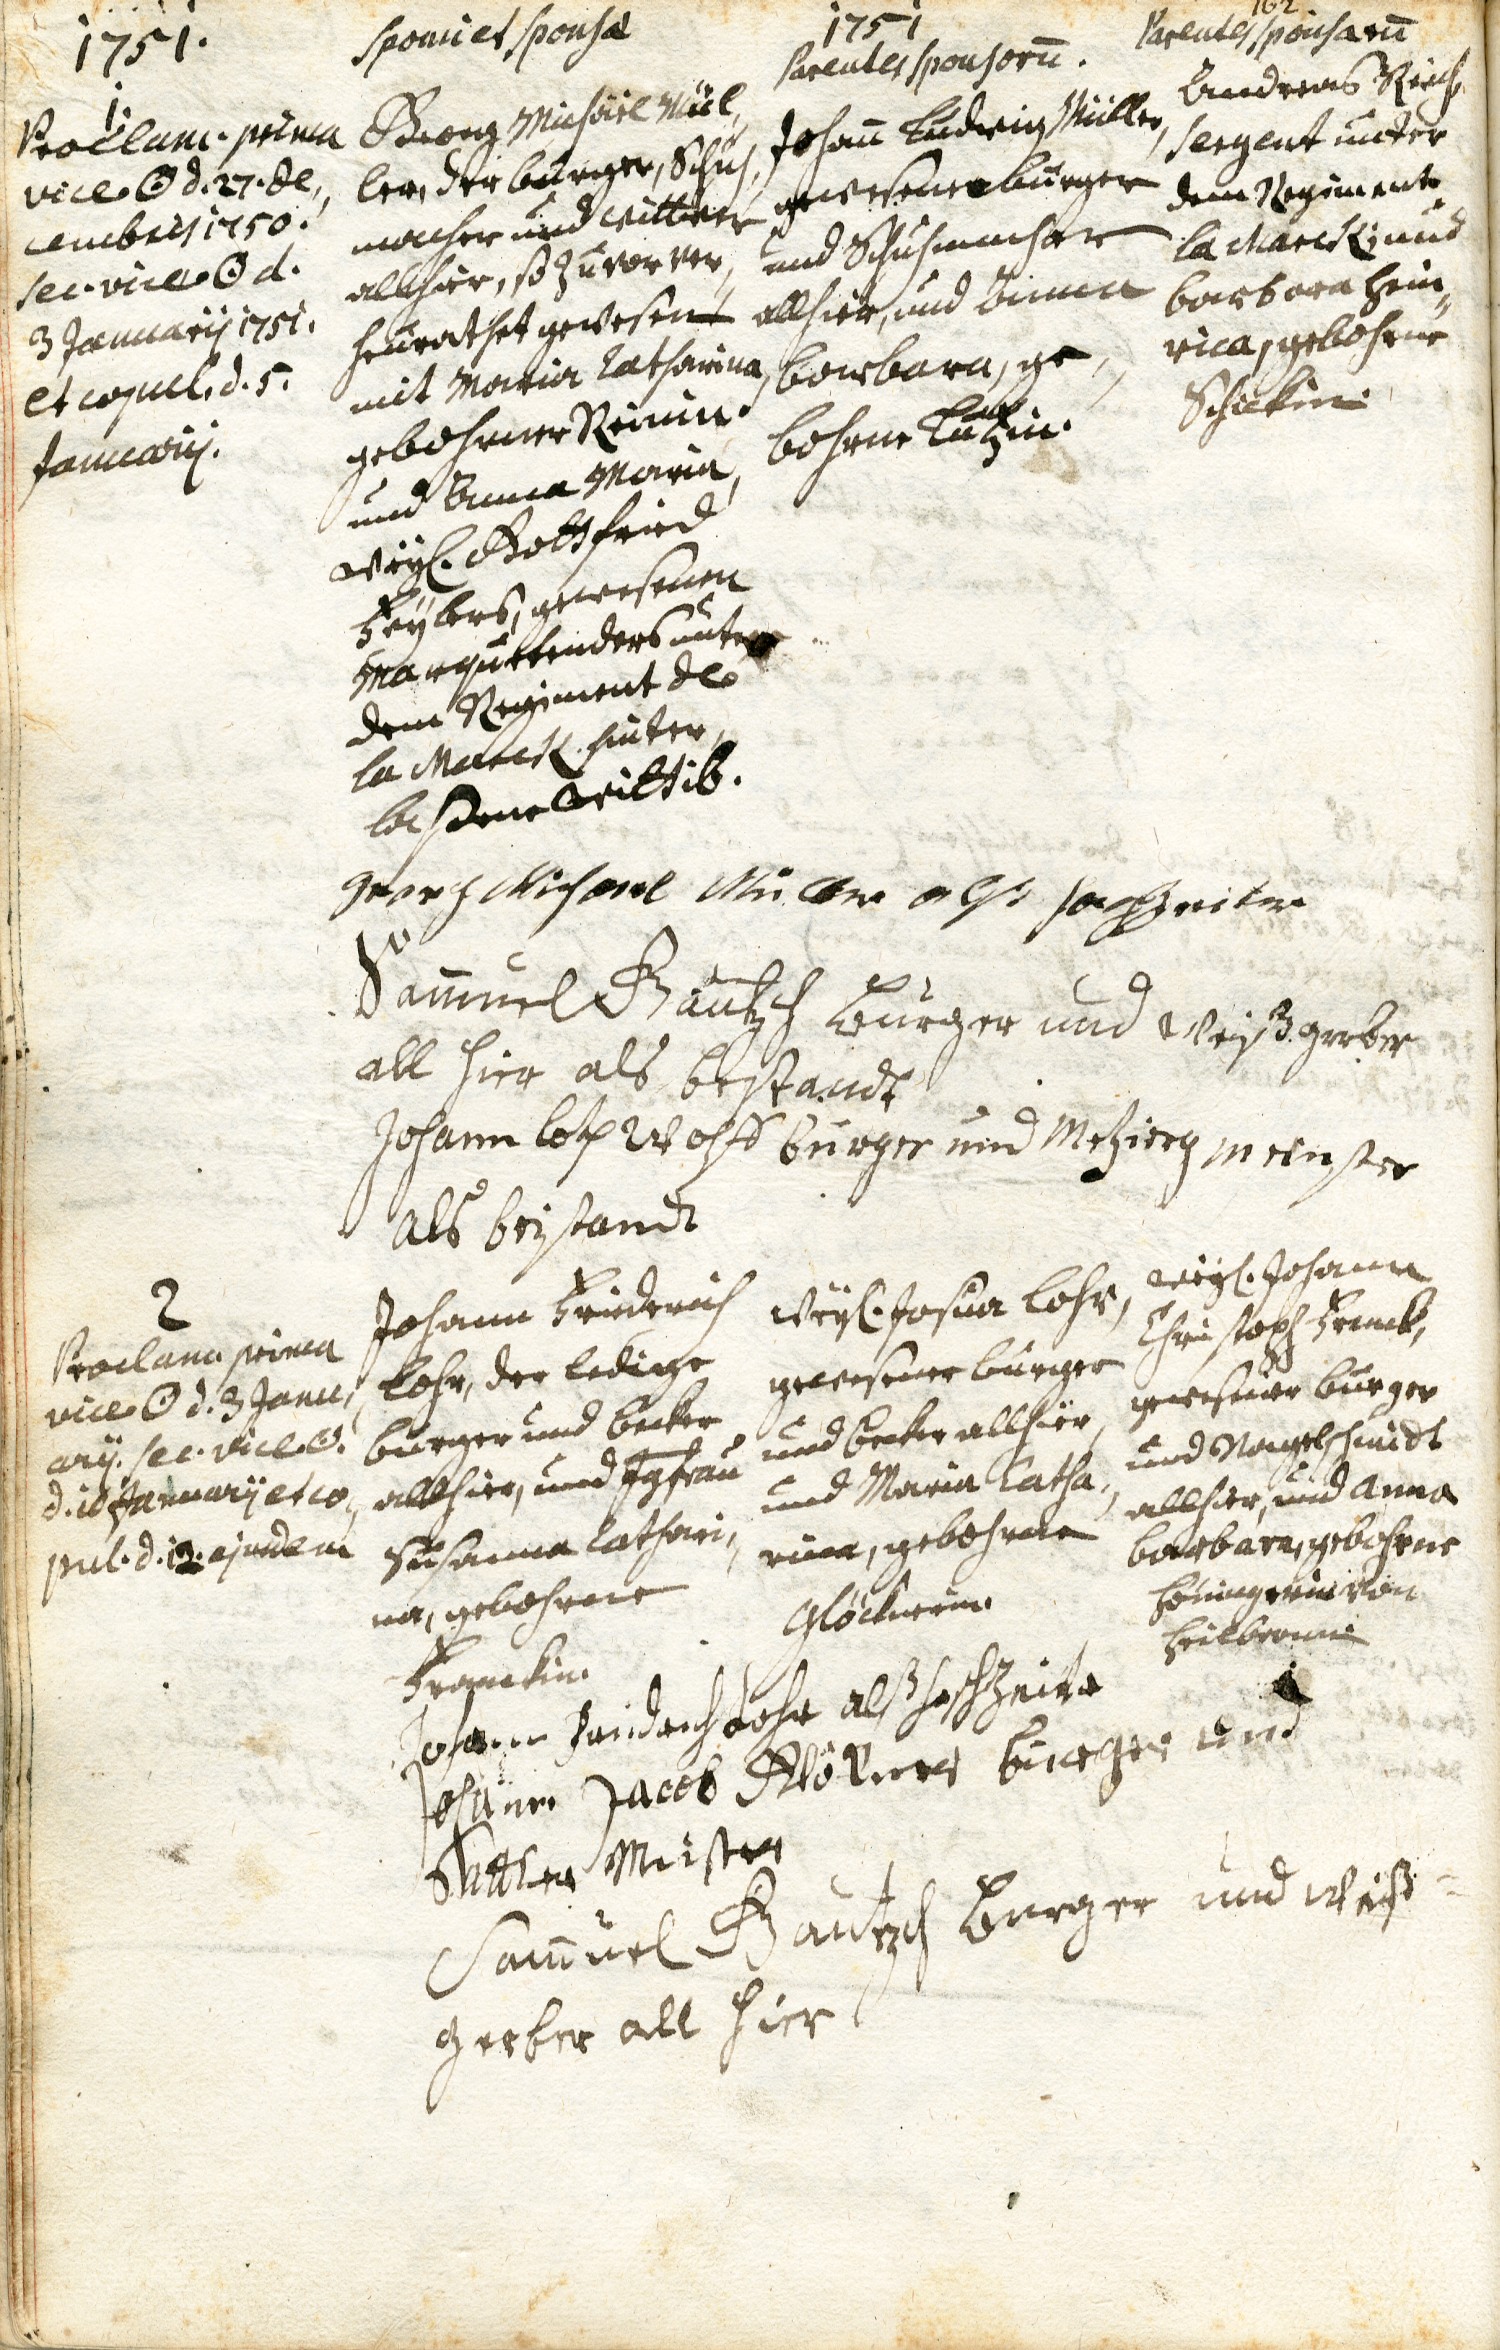 162
1751.
Sponsi et Sponsæ
1751
Parentes sponsorū.
Parentes sponsarū
1.
Proclam. prima
vice ☉ d. 27. De,
cembris 1750.
sec. vice ☉ d.
3 Januarij 1751.
et copul. d. 5.
Januarij.
Georg Michäel Mül,
ler, der burger, Schuh,
macher und wittwer
allhier, so zuvor ver,
heurathet gewesen
mit Maria Catharina,
gebohrner
und Anna Maria,
weyl. Gottfried
gewesenen
Marquetenders unter
dem Regiment de
la Marck hinter,
laßene Wittib.
Johañ Ludwig Müller,
gewesener burger
und Schuhmacher
allhier, und Anna
barbara, ge,
bohrne Lutzin.
Andreas Reich,
sergent unter
dem Regiment
la Marck, und
barbara Hein,
rica, gebohrne
Schickin
Georg Michael Müller alß hochzeiter
Sam̄uel Bäutzh Burger und Weißgerber
all hier als beystandt
Johann burger und Metziger meinster
als beystandt
2
Proclam. prima
vice ☉ d. 3 Janu,
arij. sec. vice ☉.
d. 10 Januarij et co,
pul. d. 12. ejusdem
Johann Friderich
Lohr, der ledige
burger und becker
allhier, und Jgfrau
Susanna Cathari,
na, gebohrne
Franckin.
Weyl. Josua Lohr,
gewesener burger
und becker allhier,
und Maria Catha,
rina, gebohrne
Glöcknerin.
weyl. Johann
Christoph Franck,
gewesener burger
und Nagelschmidt
allhier, und Anna
barbara, gebohrne
von
Heilbronn
Johann Fridrich Lohr alß hochzeiter
Johann Jacob Klöckner burger und
Sattler Meister
Sam̄uel Bautzh Burger und Weiß=
gerber all hier